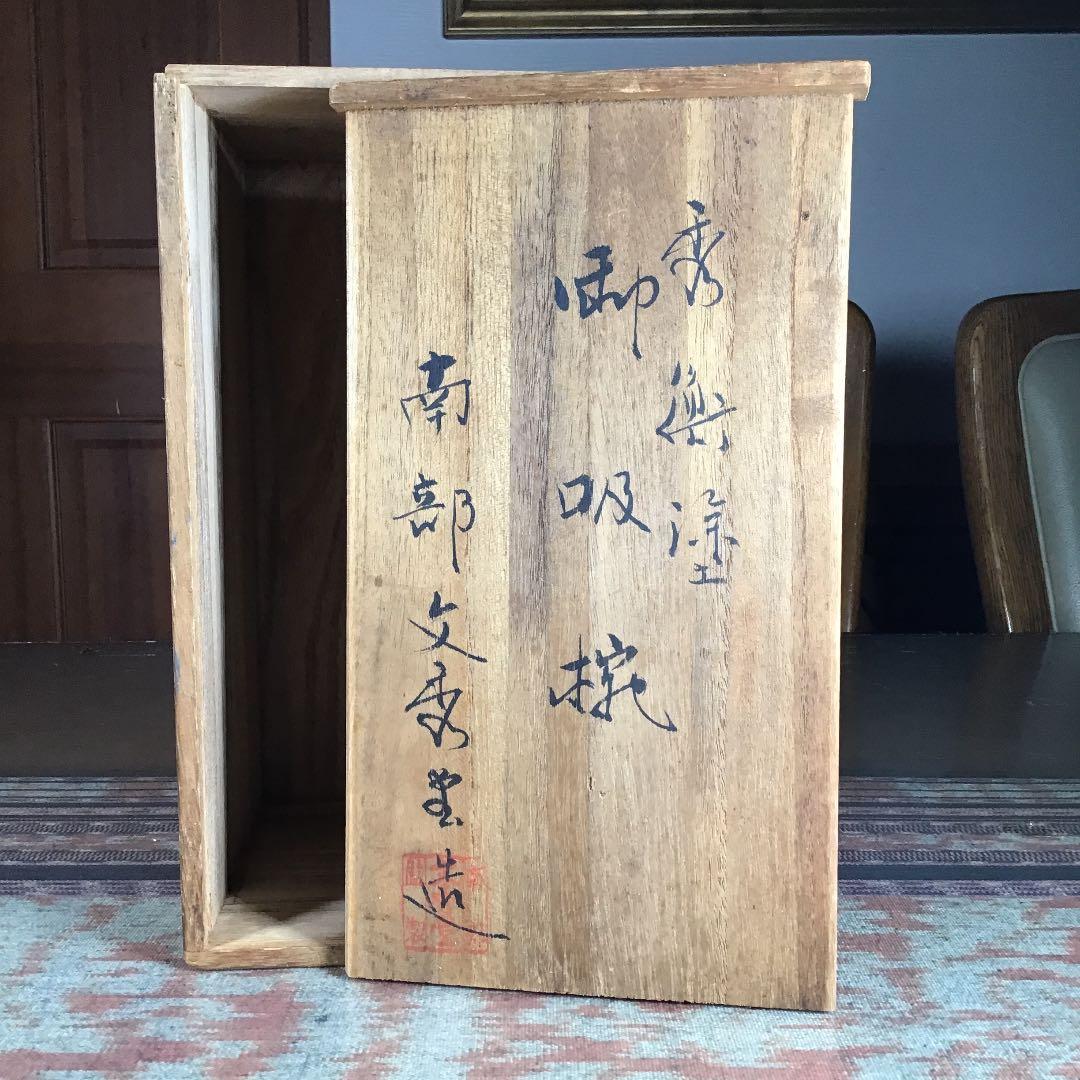 秀衡塗
御吸椀
南部文秀堂造